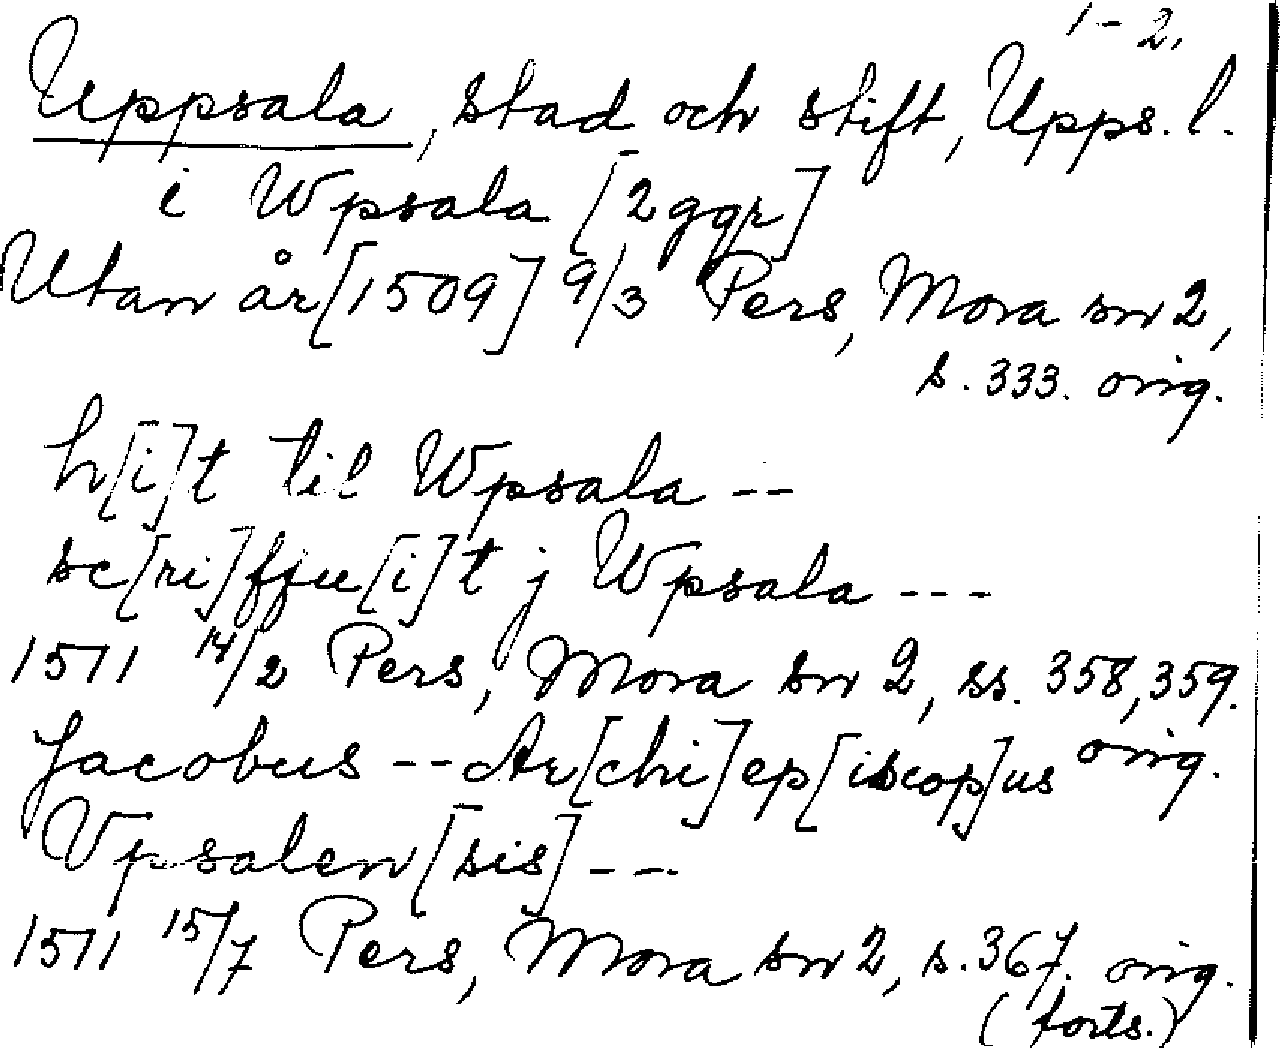 1-2.
Uppsala, stad och stift, Upps. l.
i Wpsala [2 ggr]
Utan år [1509] 9/3 Pers, Mora sn 2,
s. 333. orig.
h[i]t til Wpsala --
sc[ri]ffu[i]t j Wpsala ---
1511 14/2 Pers, Mora sn 2, ss. 358, 359.
orig.
Jacobus -- Ar[chi]ep[iscop]us
Vpsalen[sis] ---
1511 15/7 Pers, Mora sn 2, s. 367. orig.
(forts.)